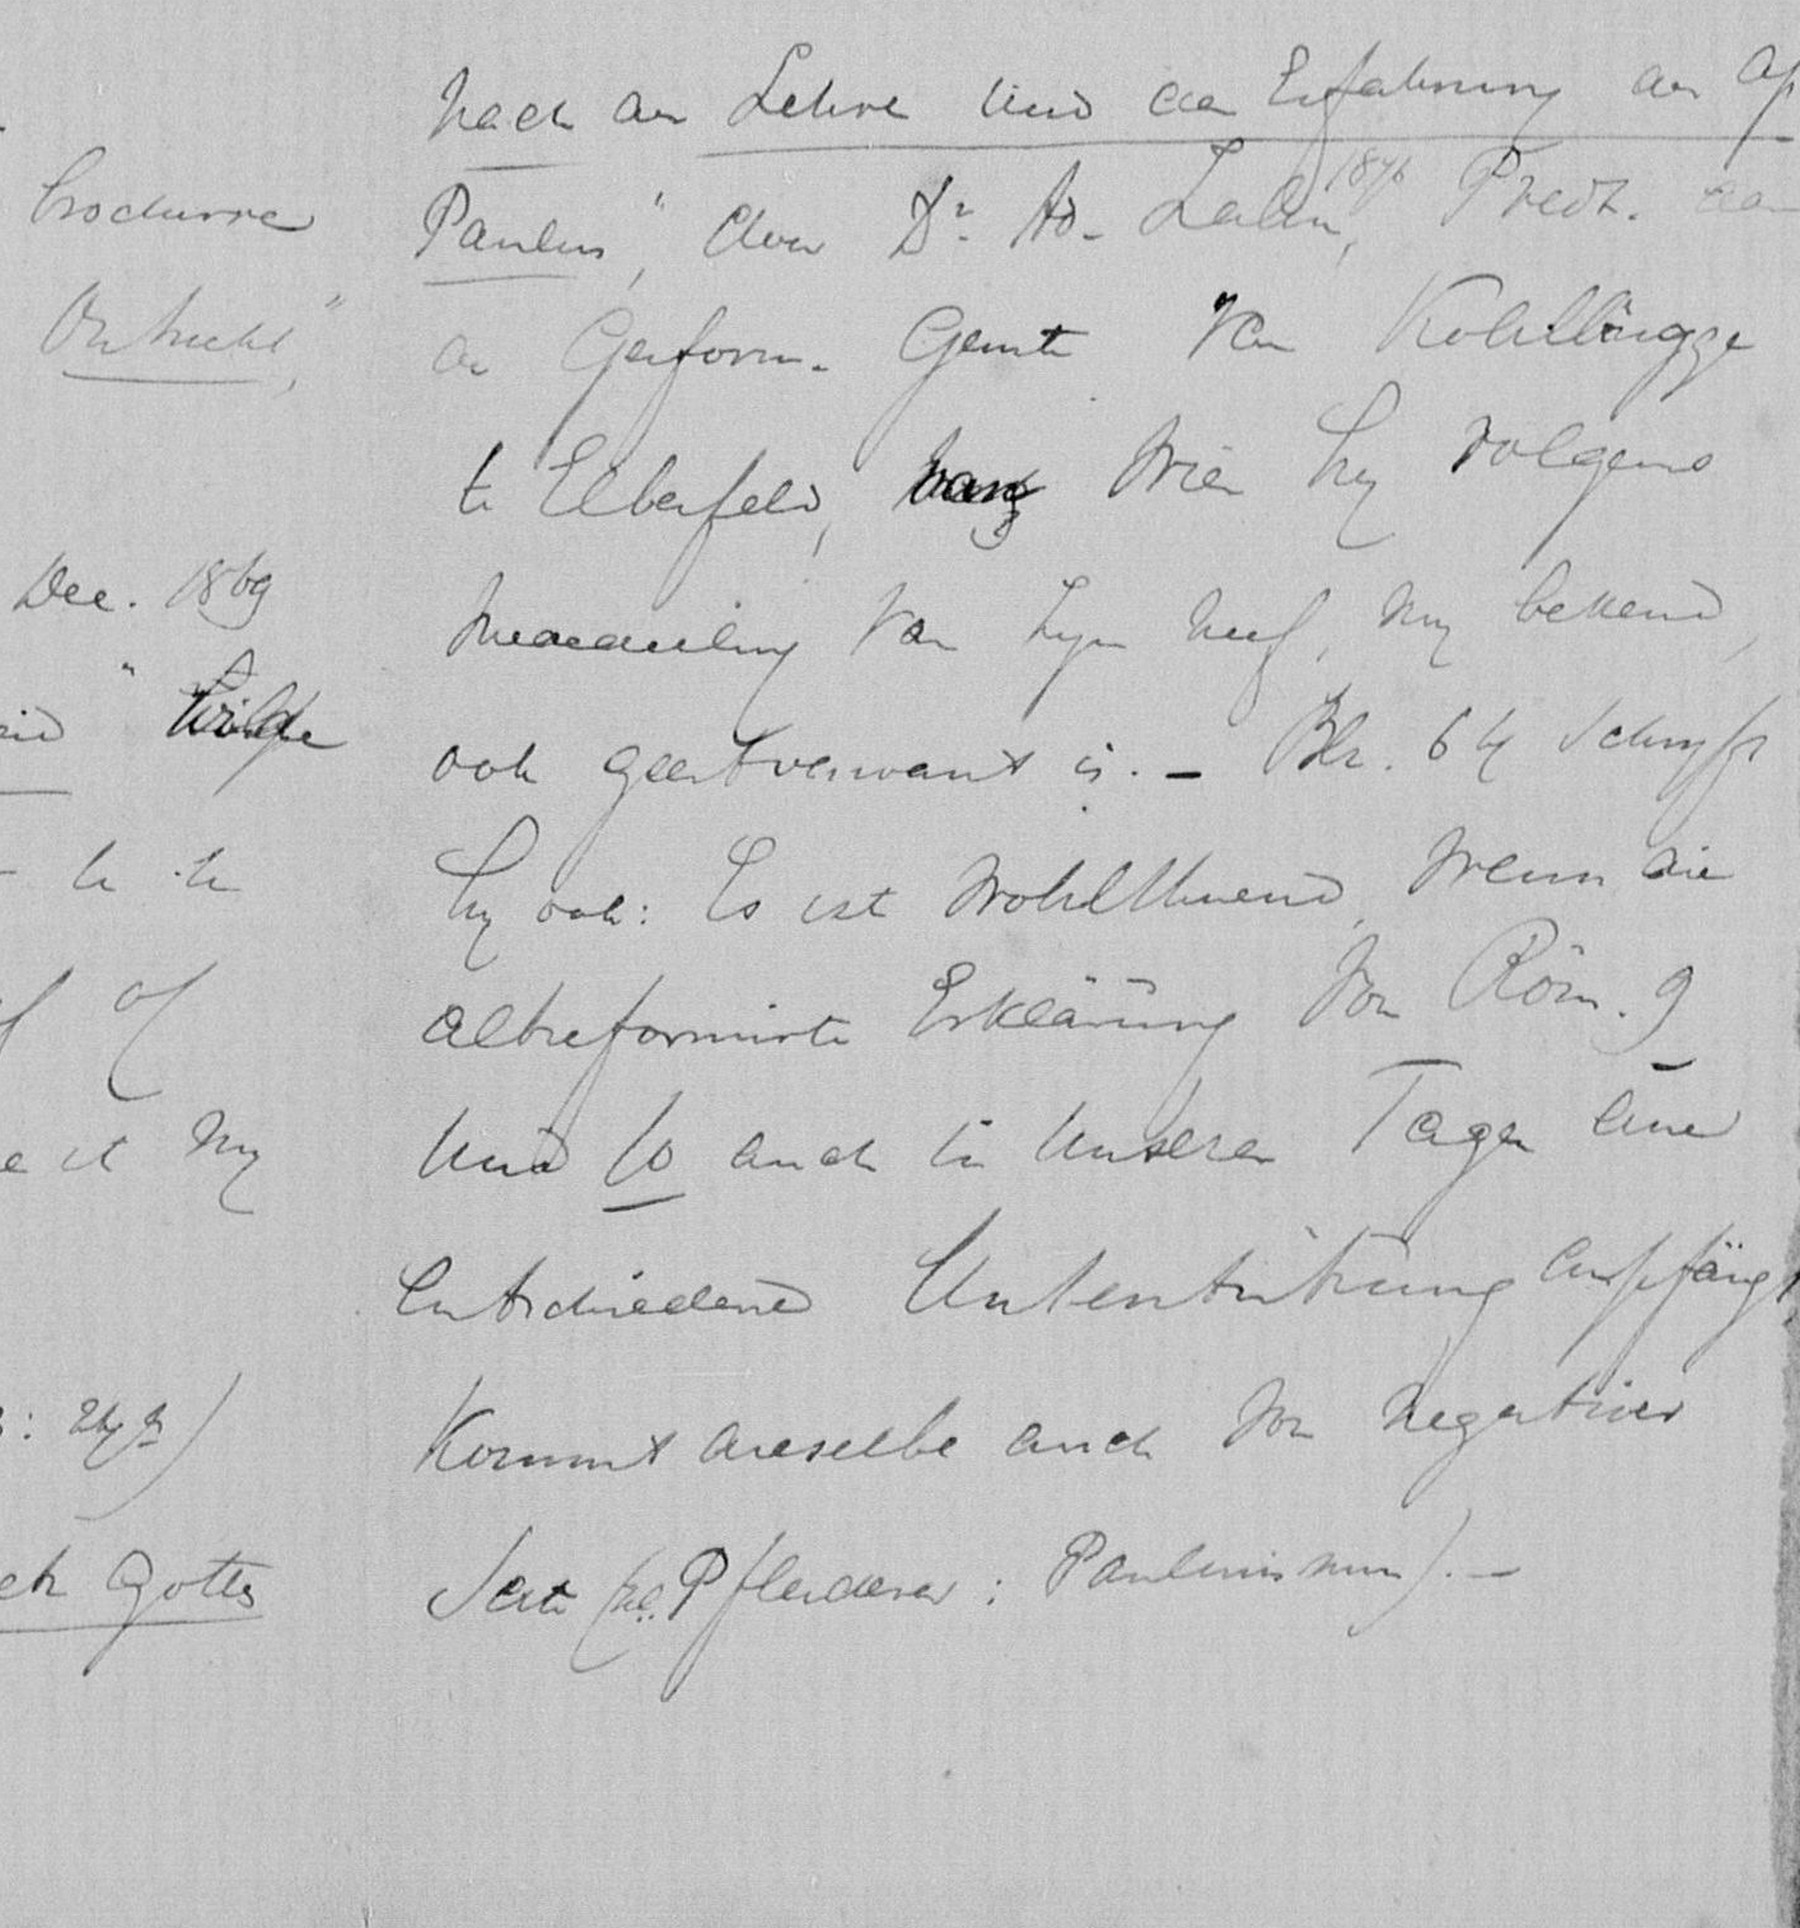 brochurre
Ontrecht",
Dec. 1869
"
te te
of
et my
: 24 a)
ch Gottes
nach der Lehre und der Erfahrung der Ap
Paulus", door Dr. Ad. Zahn, 1876 Predt. aan
de Gereform. Gemte van Kohlbrügge
te Elberfeld, wien hy volgens
mededeeling van zyn neef, my bekend,
ook geestverwant is. — Blz. 64 schryft
hy ook: Es ist wohlthuend, wenn die
altreformirte Erklärung von Röm. 9
und 10 auch in unseren Tagen eine
entschiedene Unterstützung empfängt,
Kommt dieselbe auch von negativer
Seite (Pfleiderer: Paulinismus). —